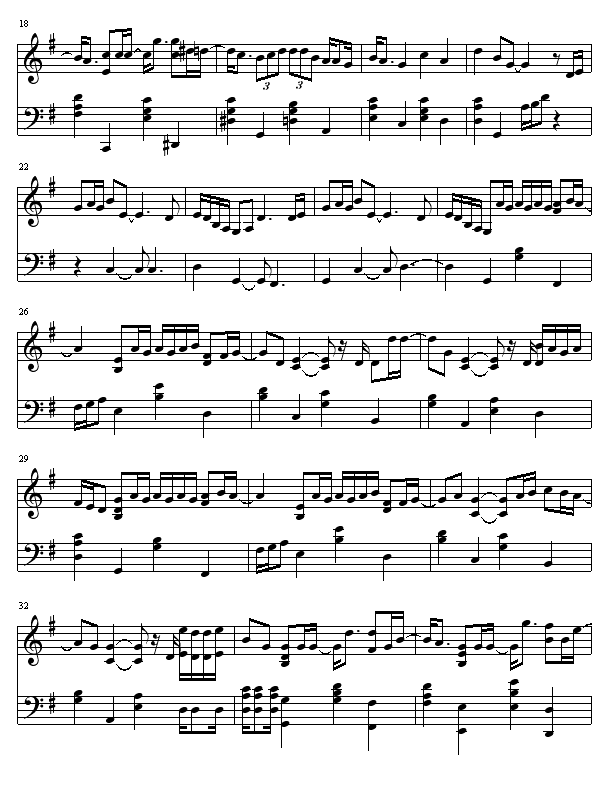 18
3 3
22
26
29
32